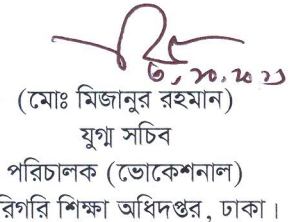 ৩.১০.২০২১
(মোঃ মিজানুর রহমান)
যুগ্ম সচিব
পরিচালক (ভোকেশনাল)
রিগরি শিক্ষা অধিদপ্তর, ঢাকা।